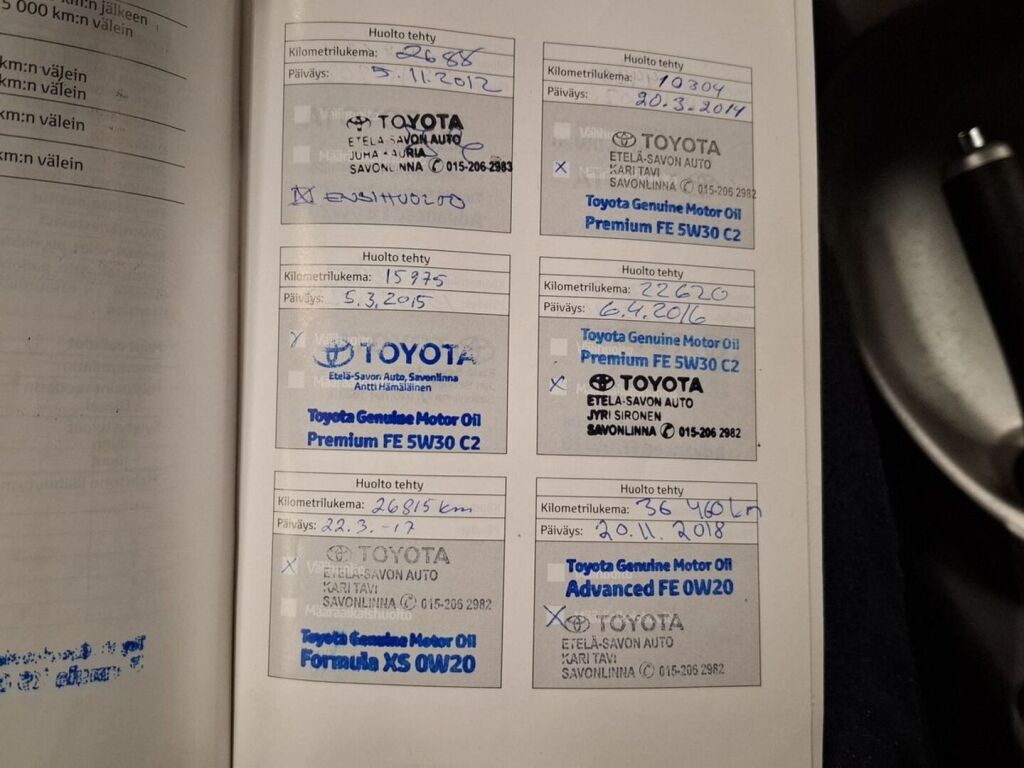 km:n jälkeen
5 000 km:n välein
km:n välein
km:n välein
km:n välein
km:n välein
Huolto tehty
Kilometrilukema: 2688
Päiväys: 5.11.2012
TOYOTA
ETELÄ-SAVON AUTO
JUHA KAURIA
SAVONLINNA 015-206 2983
ENSIHUOLTO
Huolto tehty
Kilometrilukema: 10304
Päiväys: 20.3.2014
TOYOTA
ETELÄ-SAVON AUTO
KARI TAVI
SAVONLINNA 015-206 2982
Toyota Genuine Motor Oil
Premium FE 5W30 C2
Huolto tehty
Kilometrilukema: 15975
Päiväys: 5.3.2015
TOYOTA
Etelä-Savon Auto, Savonlinna
Antti Hämäläinen
Toyota Genuine Motor Oil
Premium FE 5W30 C2
Huolto tehty
Kilometrilukema: 22620
Päiväys: 6.4.2016
Toyota Genuine Motor Oil
Premium FE 5W30 C2
TOYOTA
ETELÄ-SAVON AUTO
JYRI SIRONEN
SAVONLINNA 015-206 2982
Huolto tehty
Kilometrilukema: 26815 km
Päiväys: 22.3.-17
TOYOTA
ETELÄ-SAVON AUTO
KARI TAVI
SAVONLINNA 015-206 2982
Määräaikaishuolto
Toyota Genuine Motor Oil
Formula XS 0W20
Huolto tehty
Kilometrilukema: 36 460 km
Päiväys: 20.11.2018
Toyota Genuine Motor Oil
Advanced FE 0W20
TOYOTA
ETELÄ-SAVON AUTO
KARI TAVI
SAVONLINNA 015-206 2982